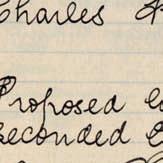 Charles
Proposed
seconded